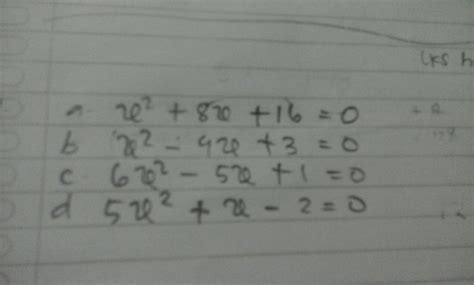 a x² + 8x + 16 = 0
b x² - 4x + 3 = 0
c 6x² - 5x + 1 = 0
d 5x² + x - 2 = 0